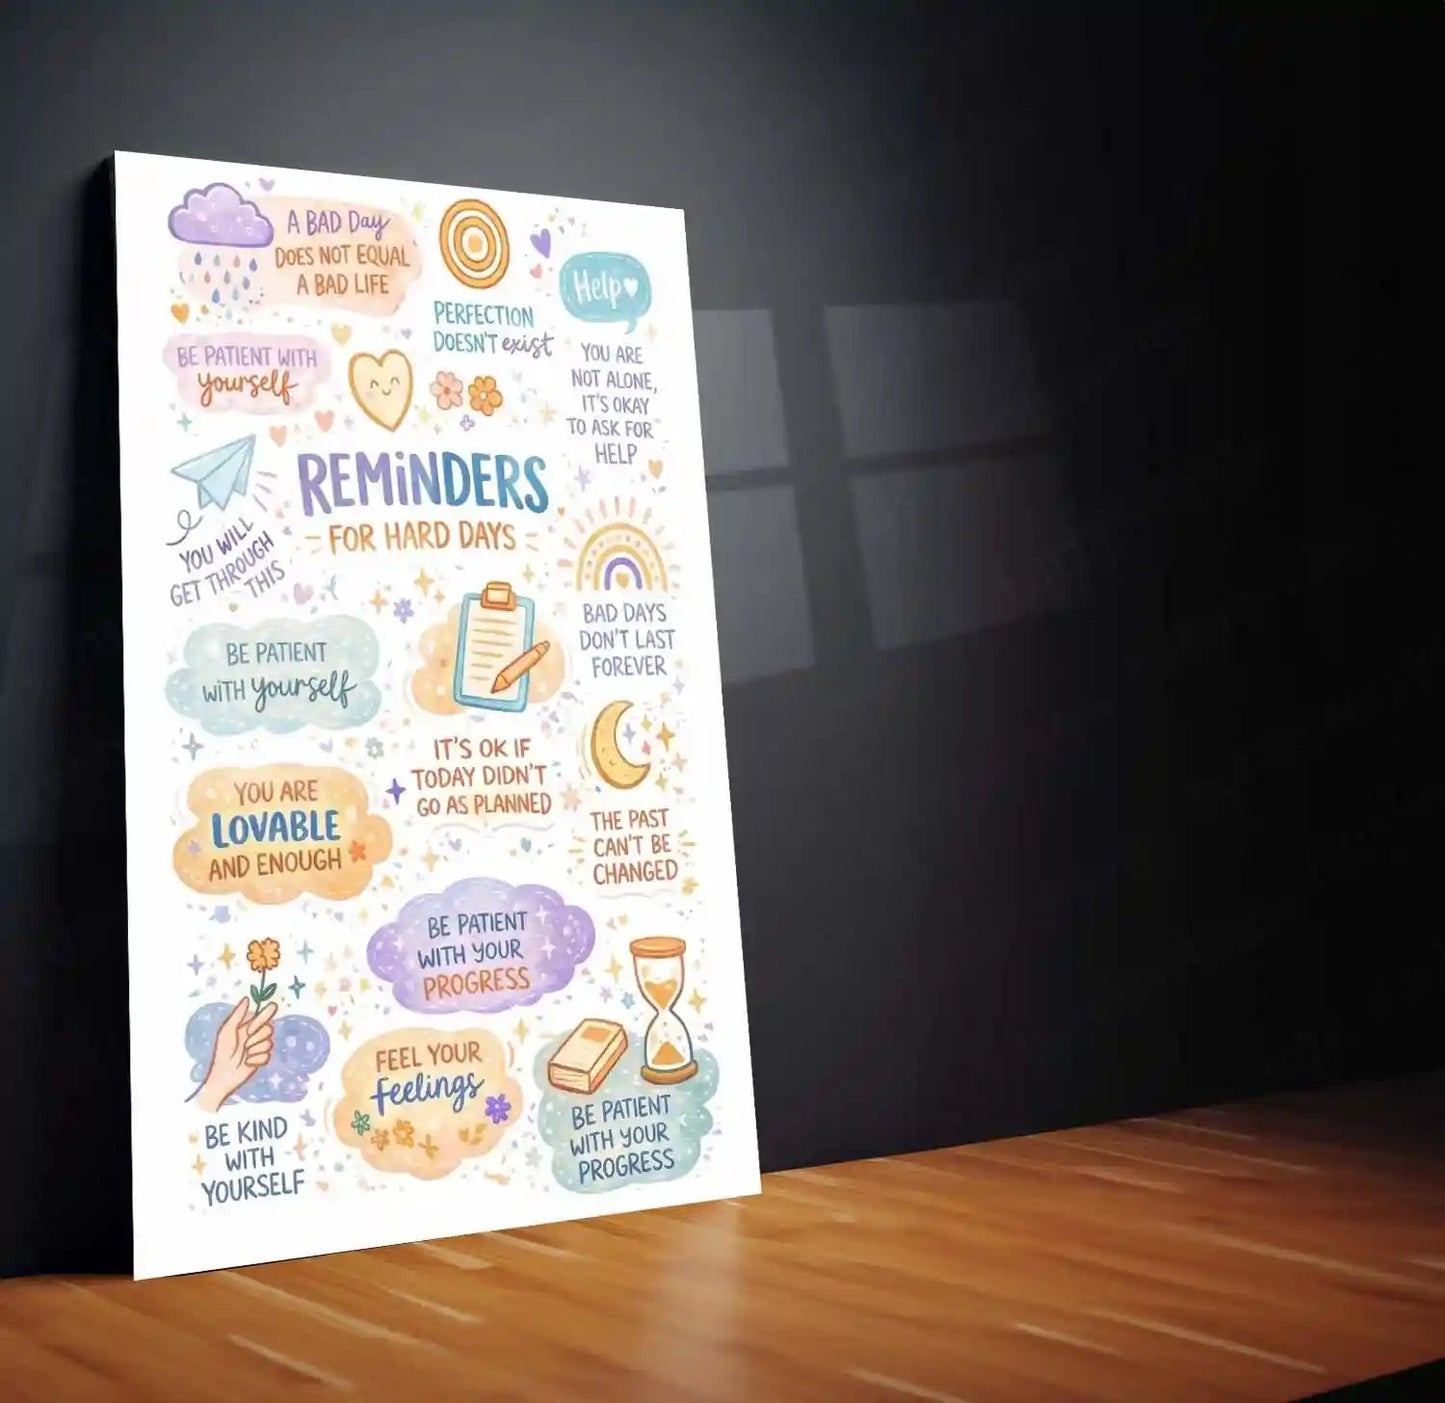 A BAD Day
DOES NOT EQUAL
A BAD LIFE
PERFECTION
DOESN'T exist
Help
YOU ARE
NOT ALONE,
IT'S OKAY
TO ASK FOR
HELP
BE PATIENT WITH
yourself
REMINDERS
FOR HARD DAYS
YOU WILL
GET THROUGH
THIS
BAD DAYS
DON'T LAST
FOREVER
BE PATIENT
WITH yourself
IT'S OK IF
TODAY DIDN'T
GO AS PLANNED
YOU ARE
LOVABLE
AND ENOUGH
THE PAST
CAN'T BE
CHANGED
BE PATIENT
WITH YOUR
PROGRESS
BE KIND
WITH
YOURSELF
FEEL YOUR
Feelings
BE PATIENT
WITH YOUR
PROGRESS